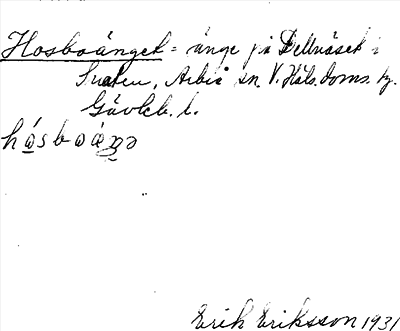 Hosboänget = änge på Dellnäset i
Svaten, Arbrå sn. V. Häls. doms. hg.
Gävleb. l.
Erik Eriksson 1931